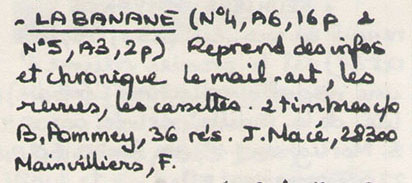 - LA BANANE (N°4, A6, 16p &
N°5, A3, 2p) Reprend des infos
et chronique le mail-art, les
revues, les cassettes. 2 timbres c/o
B. Pommey, 36 rés. J. Macé, 28300
Mainvilliers, F.